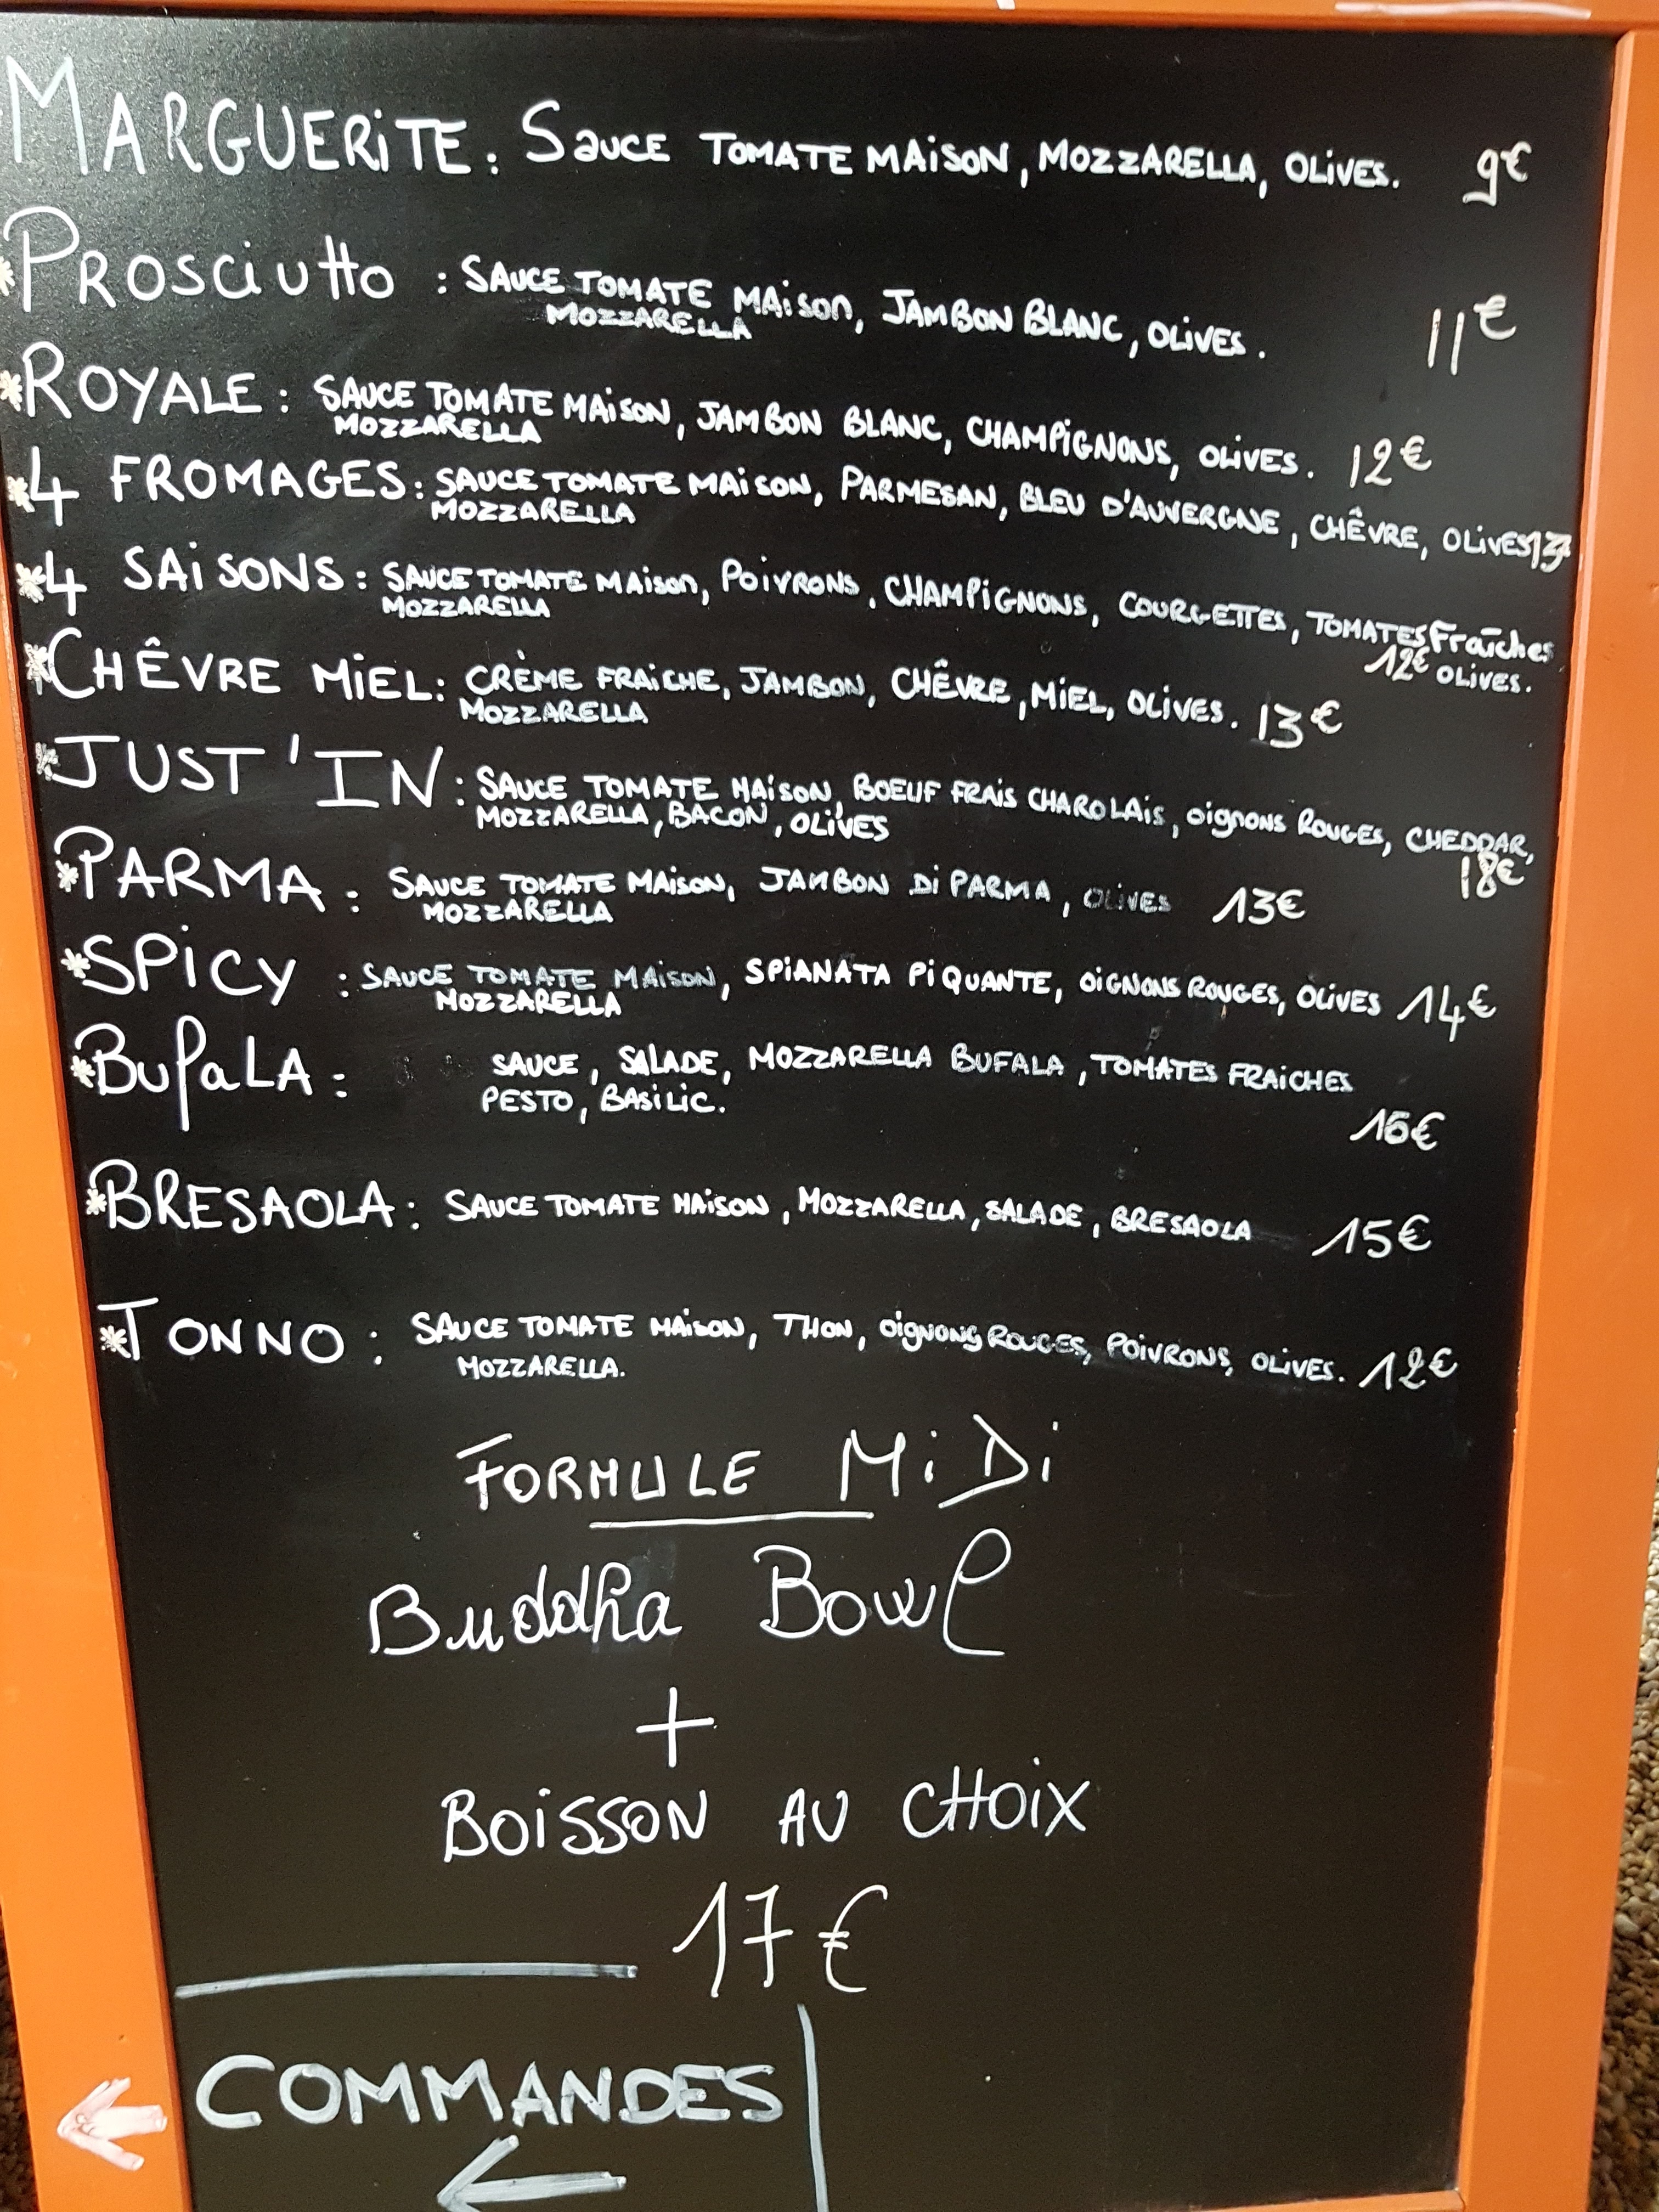 MARGUERITE : SAUCE TOMATE MAISON, MOZZARELLA, OLIVES. 9€
*PROSCIUTTO : SAUCE TOMATE MAISON, JAMBON BLANC, OLIVES. 11€
MOZZARELLA
*ROYALE : SAUCE TOMATE MAISON, JAMBON BLANC, CHAMPIGNONS, OLIVES. 12€
MOZZARELLA
*4 FROMAGES : SAUCE TOMATE MAISON, PARMESAN, BLEU D'AUVERGNE, CHÊVRE, OLIVES
MOZZARELLA
*4 SAISONS : SAUCE TOMATE MAISON, POIVRONS, CHAMPIGNONS, COURGETTES, TOMATES FRAÎCHES
MOZZARELLA
12€ OLIVES.
*CHÊVRE MIEL : CRÈME FRAICHE, JAMBON, CHÊVRE, MIEL, OLIVES. 13€
MOZZARELLA
*JUST'IN : SAUCE TOMATE MAISON, BOEUF FRAIS CHAROLAIS, OIGNONS ROUGES, CHEDDAR,
MOZZARELLA, BACON, OLIVES
18€
*PARMA : SAUCE TOMATE MAISON, JAMBON DI PARMA, OLIVES 13€
MOZZARELLA
*SPICY : SAUCE TOMATE MAISON, SPIANATA PIQUANTE, OIGNONS ROUGES, OLIVES 14€
MOZZARELLA
*BUFALA : SAUCE, SALADE, MOZZARELLA BUFALA, TOMATES FRAICHES
PESTO, BASILIC.
*BRESAOLA : SAUCE TOMATE MAISON, MOZZARELLA, SALADE, BRESAOLA 15€
*TONNO : SAUCE TOMATE MAISON, THON, OIGNONS ROUGES, POIVRONS, OLIVES. 12€
MOZZARELLA.
FORMULE MIDI
Buddha Bowl
+
BOISSON AU CHOIX
17€
COMMANDES